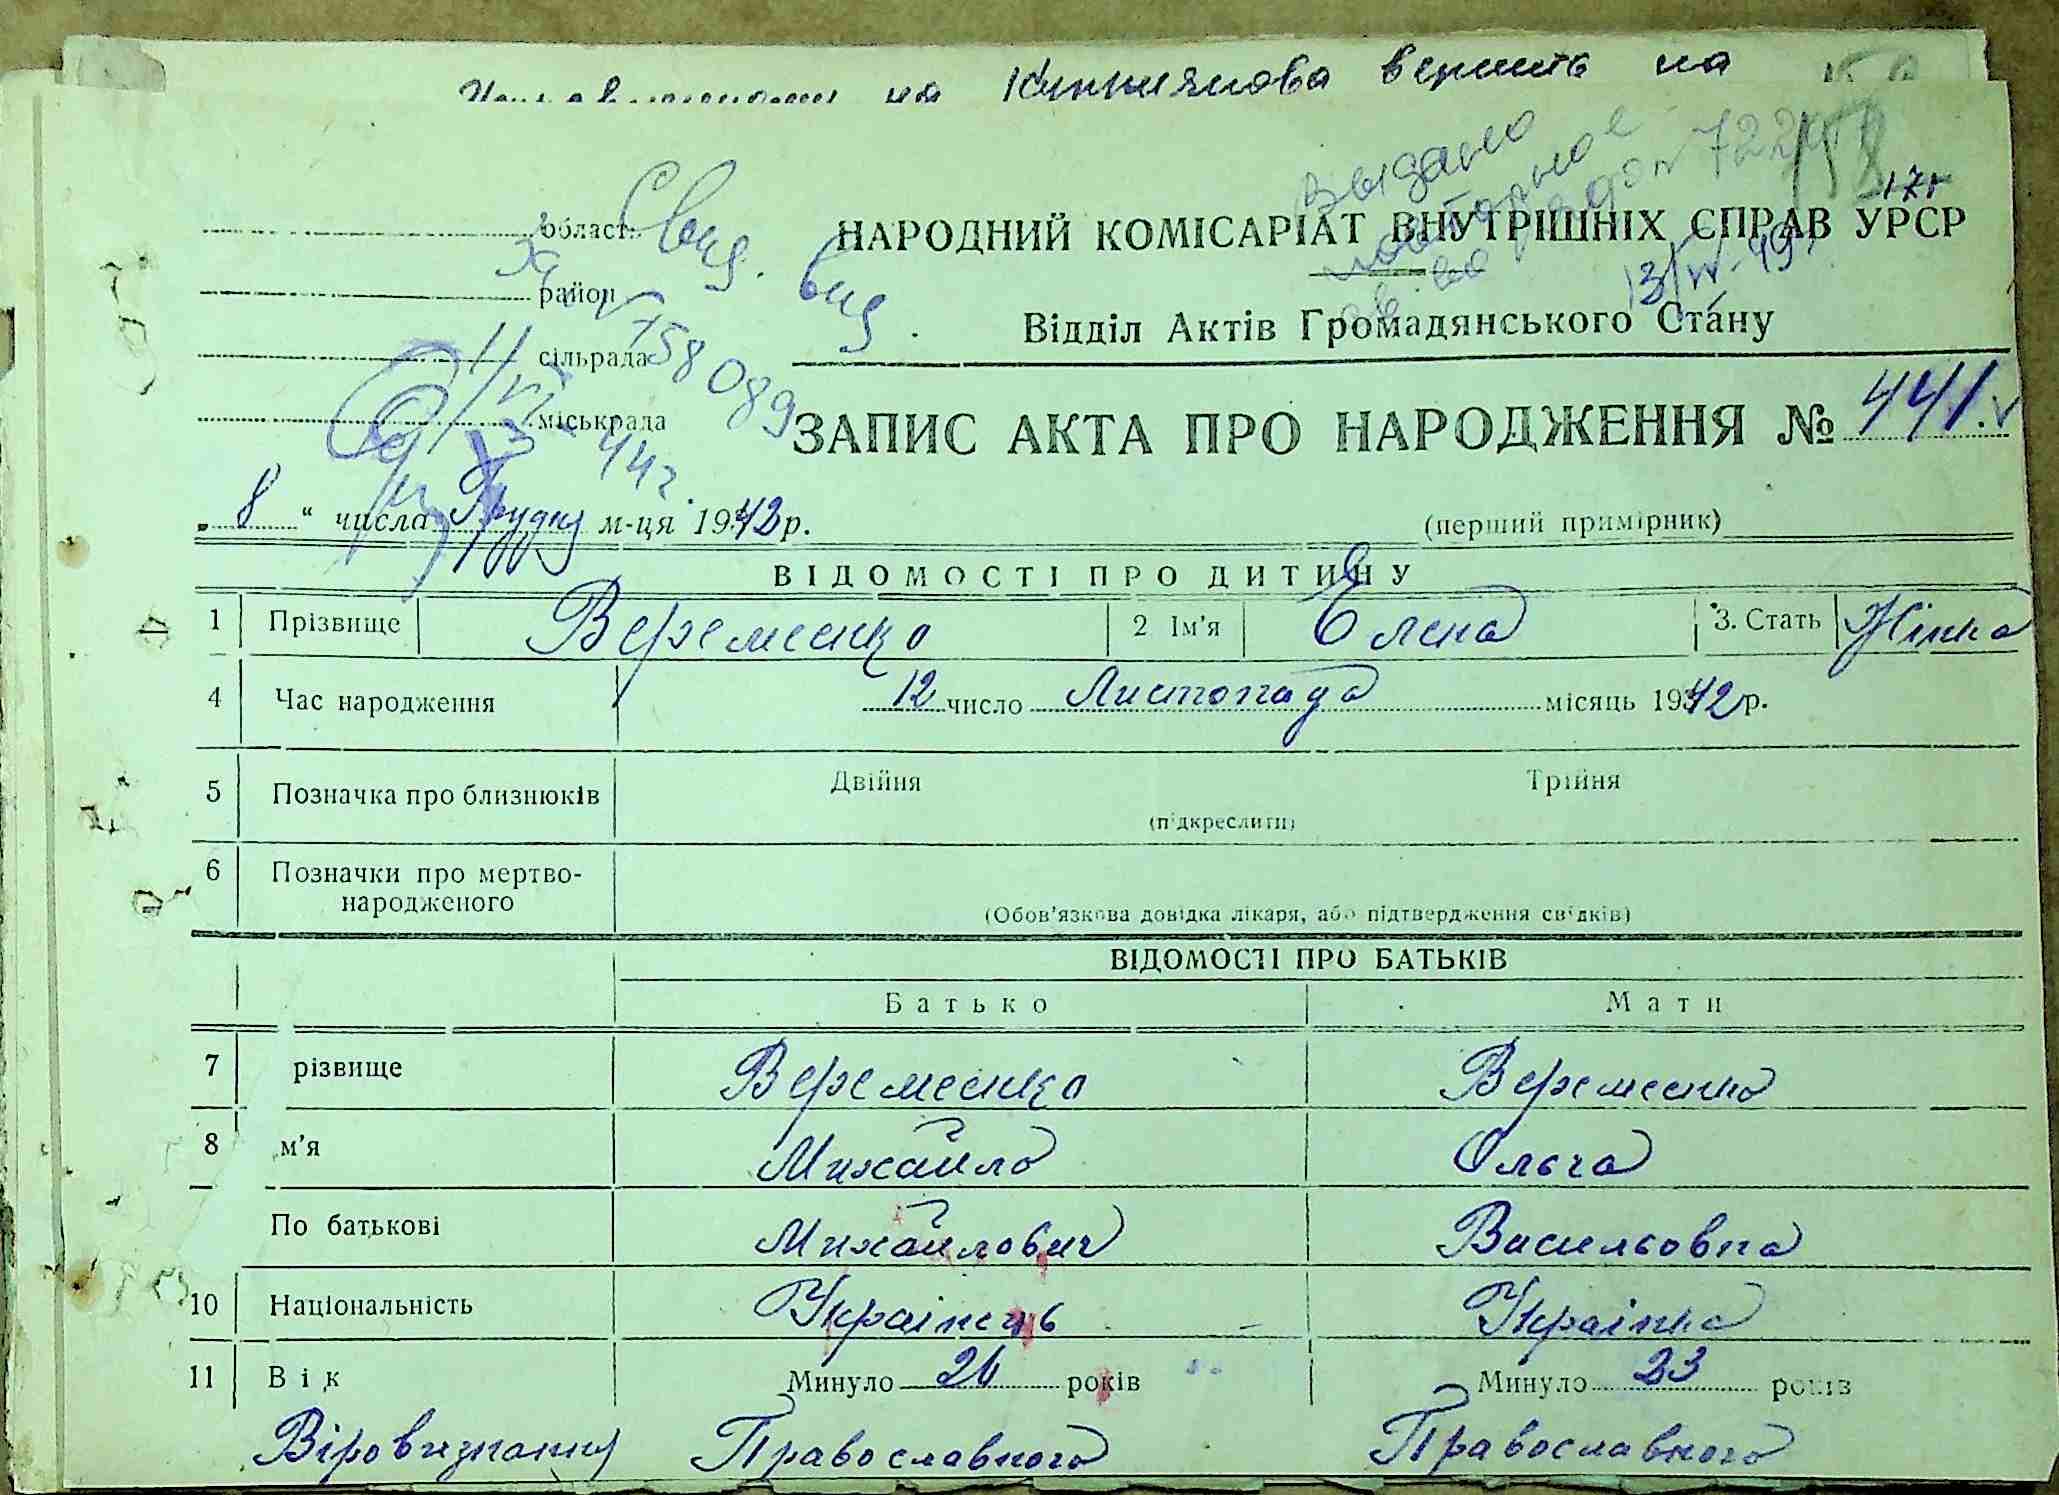 на Куприянова вершить на
Выдано
повторное
св-во
722
158
17г
област.
НАРОДНИЙ КОМІСАРІАТ ВНУТРІШНІХ СПРАВ УРСР
Свид. вид.
13/IV-49г
район
Відділ Актів Громадянського Стану
158089
сільрада
міськрада
44г.
ЗАПИС АКТА ПРО НАРОДЖЕННЯ № 441.
„8“ числа Грудня м-ця 1942 р.
(перший примірник)
ВІДОМОСТІ ПРО ДИТИНУ
1 Прізвище Веременко 2 Ім'я Елена 3. Стать Жінка
4 Час народження 12 число Листопада місяць 1942 р.
5 Позначка про близнюків Двійня Трійня
(підкреслити)
6 Позначки про мертво-
народженого
(Обов'язкова довідка лікаря, або підтвердження свідків)
ВІДОМОСТІ ПРО БАТЬКІВ
Батько Мати
7 різвище Веременко Веременко
8 м'я Михайло Ольга
По батькові Михайлович Васильовна
10 Національність Українець Українка
11 Вік Минуло 26 років Минуло 23 років
Віровизнання Православного Православного